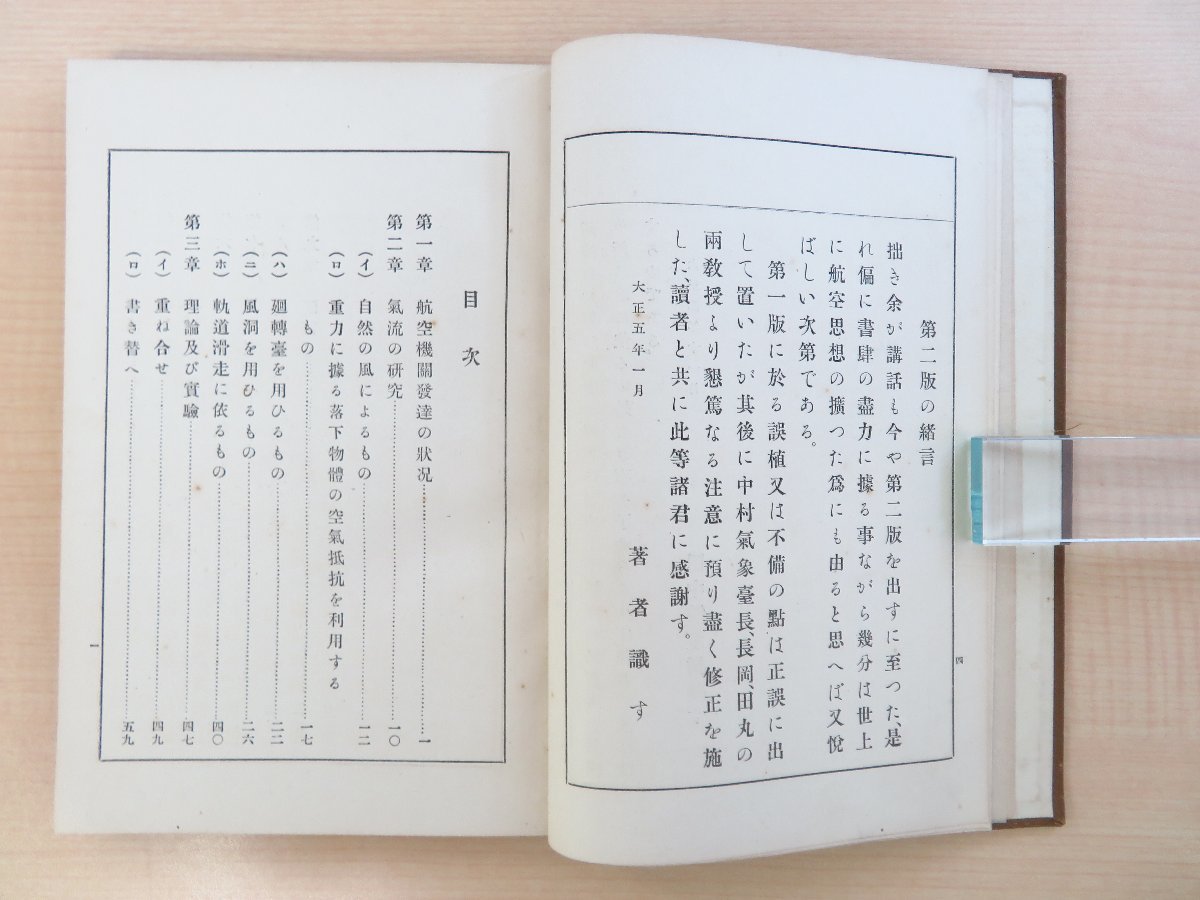 四
第二版の緒言
拙き余が講話も今や第二版を出すに至つた、是
れ偏に書肆の盡力に據る事ながら幾分は世上
に航空思想の擴つた爲にも由ると思へば又悅
ばしい次第である。
第一版に於る誤植又は不備の點は正誤に出
して置いたが其後に中村氣象臺長、長岡、田丸の
兩敎授より懇篤なる注意に預り盡く修正を施
した、讀者と共に此等諸君に感謝す。
大正五年一月
著者識す
目次
第一章 航空機關發達の狀況……一
第二章 氣流の硏究……一〇
(イ) 自然の風によるもの……一二
(ロ) 重力に據る落下物體の空氣抵抗を利用する
もの……一七
(ハ) 廻轉臺を用ひるもの……二二
(ニ) 風洞を用ひるもの……二六
(ホ) 軌道滑走に依るもの……四〇
第三章 理論及び實驗……四七
(イ) 重ね合せ……四九
(ロ) 書き替へ……五九
一